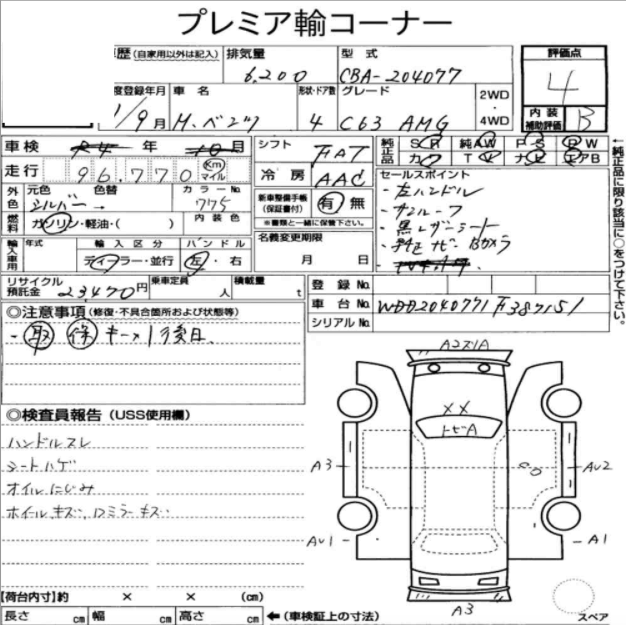 プレミア輸コーナー
歴(自家用以外は記入) 排気量 型式 評価点
6,200 CBA-204077 4
度登録年月 車名 形状・ドア数 グレード 2WD・4WD 内装補助評価
1/9月 M.ベンツ 4 C63 AMG B
車検 年 月
シフト FAT
純正品 SR 純AW PS PW
カワ TV ナビ エアB
走行 96,770 Km マイル
冷房 AAC
セールスポイント
・左ハンドル
・サンルーフ
・黒レザーシート
・純正ナビ Bカメラ
外色 元色 色替 カラーNo.
シルバー → 775
新車整備手帳(保証書付) 有 無
※書類と一緒に保管下さい。
燃料 ガソリン・軽油・( ) 内装色
輸入車用 年式 輸入区分 ハンドル
ディーラー・並行 左・右
名義変更期限
月 日
←純正品に限り該当に○をつけて下さい。
リサイクル預託金 23,470円 乗車定員 人 積載量 t
登録No.
車台No. WDD2040771F387151
シリアルNo.
◎注意事項(修復・不具合箇所および状態等)
・取 保 キー×1 後日
◎検査員報告(USS使用欄)
ハンドルスレ
シートハゲ
オイルにじみ
ホイールキズ、ロミラーキズ
A2ズ1A
××
トビA
A3
AU2
AU1
A1
A3
スペア
【荷台内寸】約 × × (cm)
長さ cm 幅 cm 高さ cm ←(車検証上の寸法)